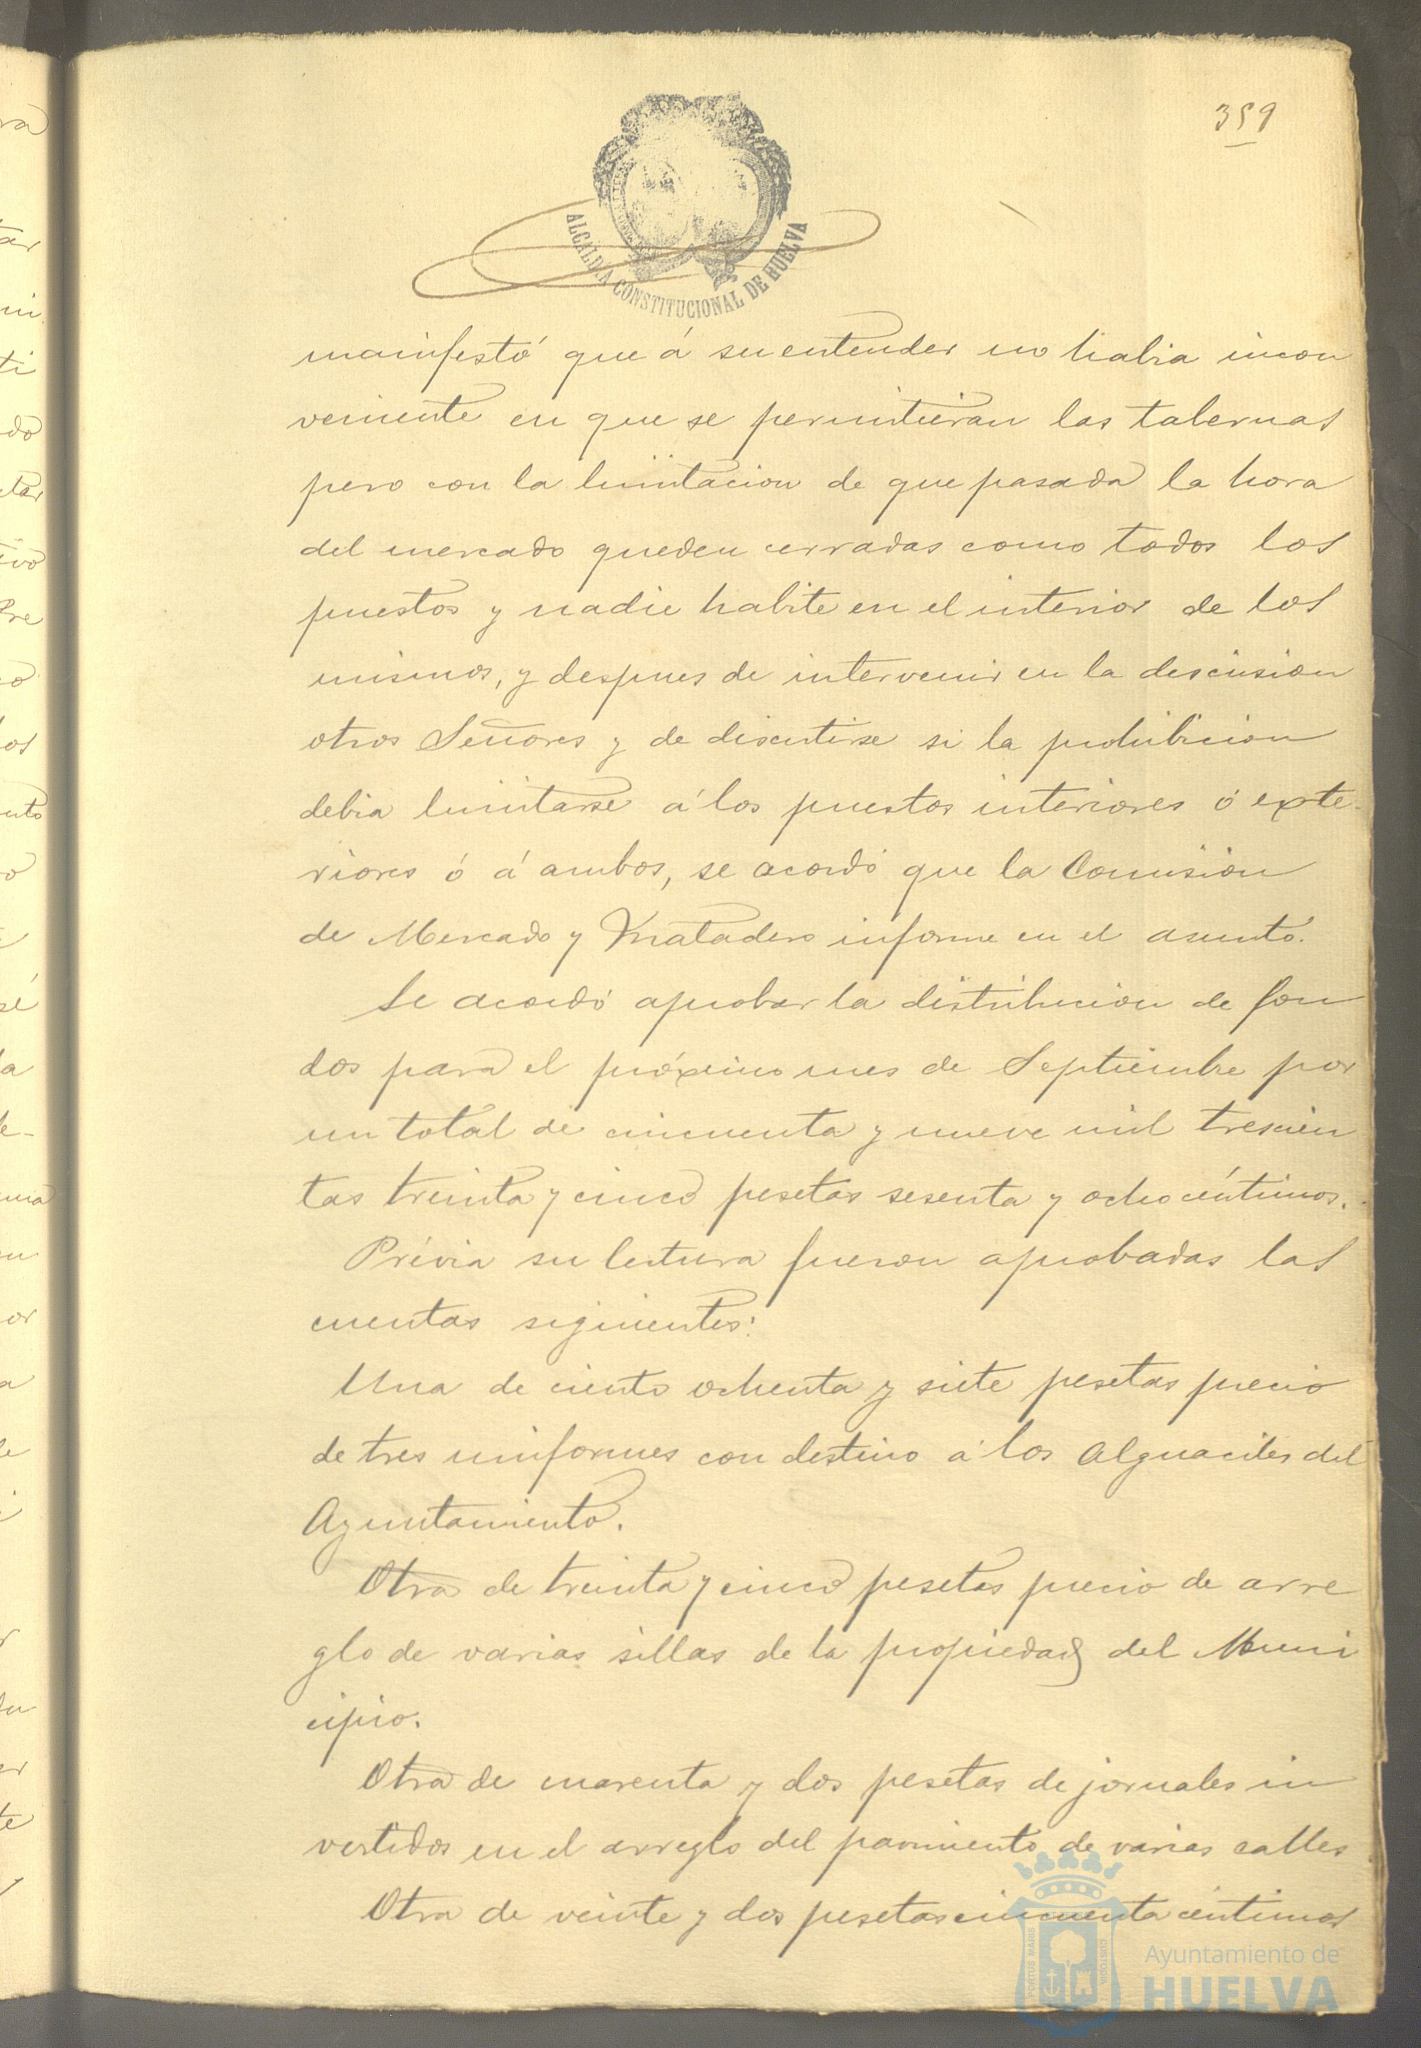 359
ALCALDIA CONSTITUCIONAL DE HUELVA
manifestó que á su entender no habia incon
veniente en que se permitieran las tabernas
pero con la limitacion de que pasada la hora
del mercado queden cerradas como todos los
puestos y nadie habite en el interior de los
mismos, y despues de intervenir en la descusion
otros Señores y de discutirse si la prohibicion
debia limitarse á los puestos interiores ó exte-
riores ó á ambos, se acordó que la Comision
de Mercado y Matadero informe en el asunto.
Se acordó aprobar la distribucion de fon
dos para el próximo mes de Septiembre por
un total de cincuenta y nueve mil trescien
tas treinta y cinco pesetas sesenta y ocho céntimos.
Prévia su lectura fueron aprobadas las
cuentas siguientes:
Una de ciento ochenta y siete pesetas precio
de tres uniformes con destino á los Alguaciles del
Ayuntamiento.
Otra de treinta y cinco pesetas precio de arre
glo de varias sillas de la propiedad del Muni
cipio.
Otra de cuarenta y dos pesetas de jornales in
vertidos en el arreglo del pavimiento de varias calles
Otra de veinte y dos pesetas cincuenta céntimos
Ayuntamiento de
HUELVA